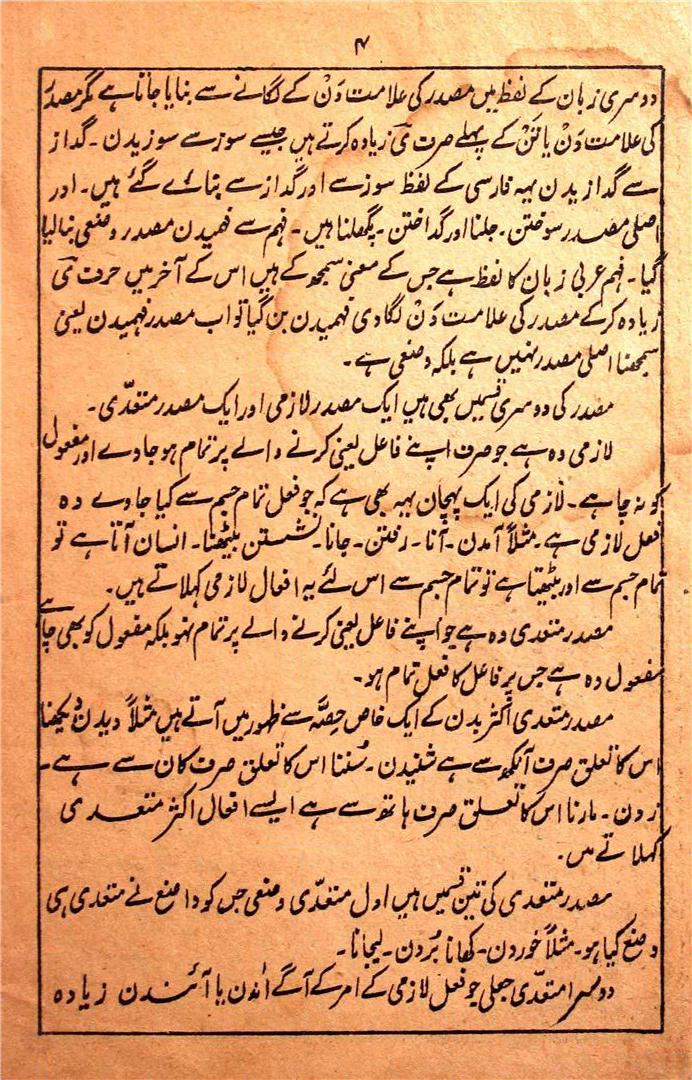 ۴
دوسری زبان کے لفظ میں مصدر کی علامت دَنْ کے لگانے سے بنایا جاتا ہے مگر مصدر
کی علامت دَنْ یا تَنْ کے پہلے حرف یَ زیادہ کرتے ہیں جیسے سوز سے سوزیدن ۔ گداز
سے گدازیدن یہہ فارسی کے لفظ سوز سے اور گداز سے بنائے گئے ہیں ۔ اور
اصلی مصدر سوختن ۔ جلنا اور گداختن ۔ پگھلنا ہیں ۔ فہم سے فہمیدن مصدر وضعی بنالیا
گیا ۔ فہم عربی زبان کا لفظ ہے جس کے معنی سمجھ کے ہیں اس کے آخر میں حرف یَ
زیادہ کرکے مصدر کی علامت دَنْ لگا دی فہمیدن بن گیا تو اب مصدر فہمیدن یعنی
سمجھنا اصلی مصدر نہیں ہے بلکہ وضعی ہے ۔
مصدر کی دوسری قسمیں بھی ہیں ایک مصدر لازمی اور ایک مصدر متعدّی ۔
لازمی وہ ہے جو صرف اپنے فاعل یعنی کرنے والے پر تمام ہو جاوے اور مفعول
کو نہ چاہے ۔ لازمی کی ایک پہچان یہہ بھی ہے کہ جو فعل تمام جسم سے کیا جاوے وہ
فعل لازمی ہے ۔ مثلاً آمدن ۔ آنا ۔ رفتن ۔ جانا ۔ نشستن بیٹھنا ۔ انسان آتا ہے تو
تمام جسم سے اور بیٹھتا ہے تو تمام جسم سے اس لئے یہ افعال لازمی کہلاتے ہیں ۔
مصدر متعدی وہ ہے جو اپنے فاعل یعنی کرنے والے پر تمام نہو بلکہ مفعول کو بھی چاہے
مفعول وہ ہے جس پر فاعل کا فعل تمام ہو ۔
مصدر متعدی اکثر بدن کے ایک خاص حِصّہ سے ظہور میں آتے ہیں مثلاً دیدن دیکھنا
اس کا تعلق صرف آنکھ سے ہے شنیدن ۔ سُننا اس کا تعلق صرف کان سے ہے ۔
زدن ۔ مارنا اس کا تعلق صرف ہاتھ سے ہے ایسے افعال اکثر متعدی
کہلاتے ہیں ۔
مصدر متعدی کی تین قسمیں ہیں اول متعدّی وضعی جس کو واضع نے متعدی ہی
وضع کیا ہو ۔ مثلاً خوردن ۔ کھانا بُردن ۔ لیجانا ۔
دوسرا متعدّی جعلی جو فعل لازمی کے امر کے آگے اندن یا آنیدن زیادہ